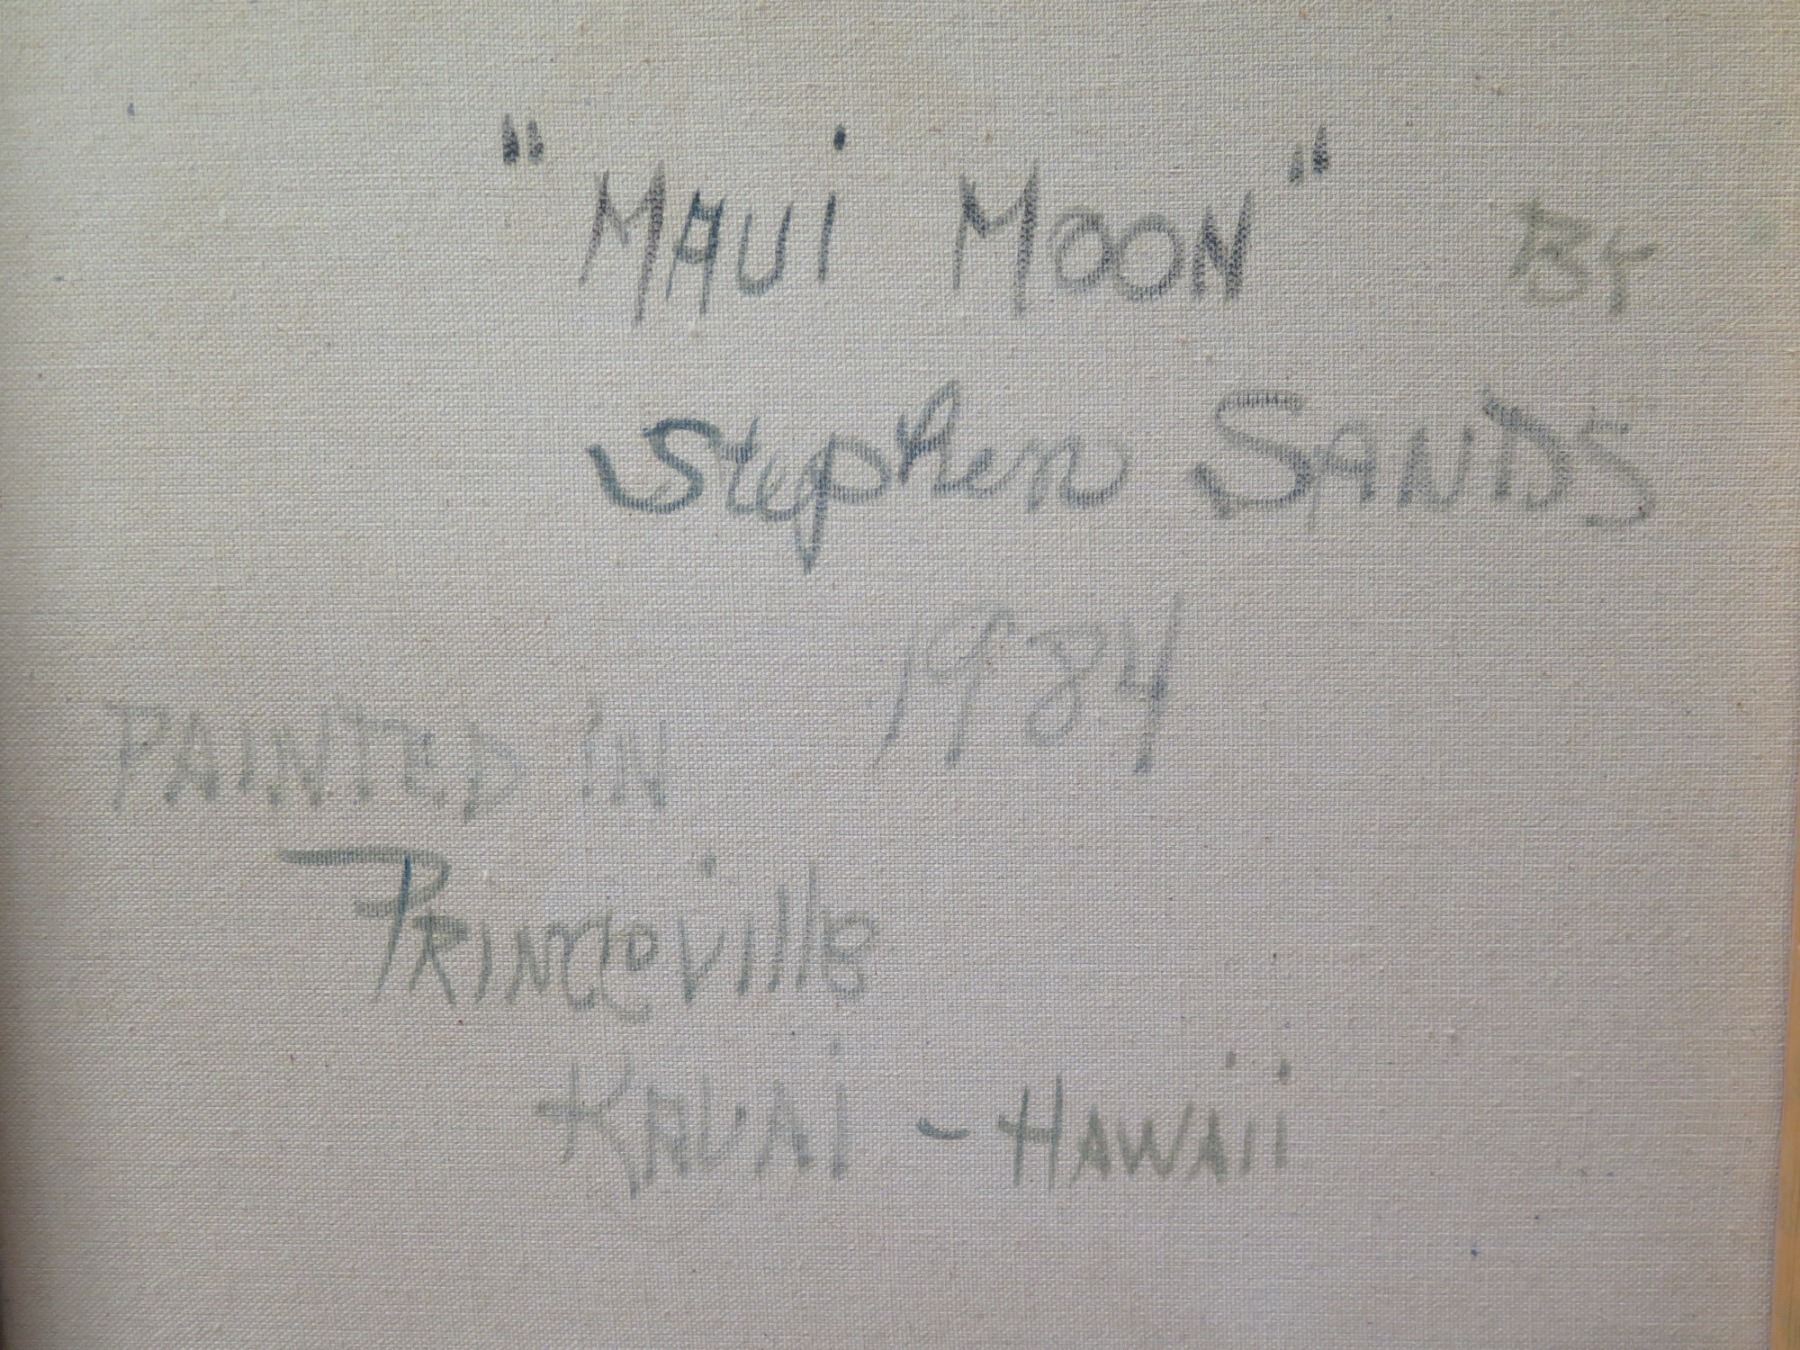 "MAUi MOON" By
Stephen SANDS
1984
PAINTED iN
PRINCeVillE
KAUAi - HAWAii